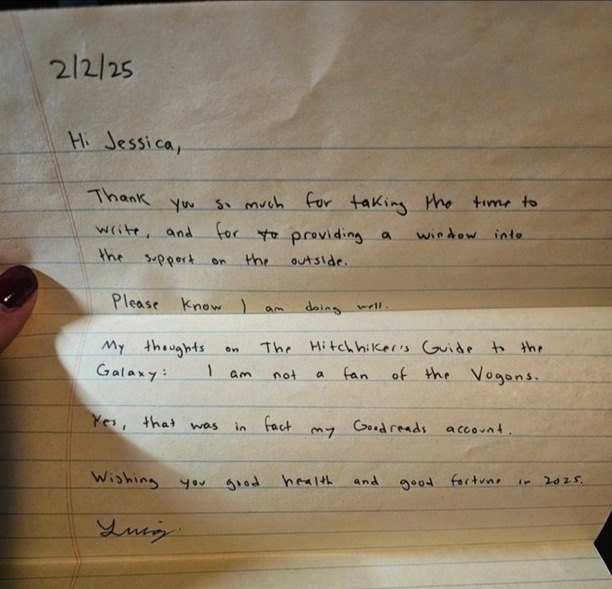 2/2/25
Hi Jessica,
Thank you so much for taking the time to
write, and for providing a window into
the support on the outside.
Please know I am doing well.
My thoughts on The Hitchhiker's Guide to the
Galaxy: I am not a fan of the Vogons.
Yes, that was in fact my Goodreads account.
Wishing you good health and good fortune in 2025.